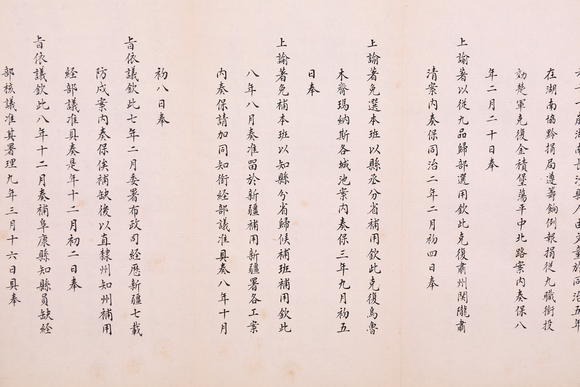 在湖南協黔捐局遵籌餉例報捐從九職銜投
効楚軍克復金積堡蕩平中北路案內奏保八
年二月二十日奉
上諭著以從九品歸部選用欽此克復肅州関隴肅
清案內奏保同治二年二月初四日奉
上諭著免選本班以縣丞分省補用欽此克復烏魯
木齊瑪納斯各城池案內奏保三年九月初五
日奉
上諭著免補本班以知縣分省歸候補班補用欽此
八年八月奏准留於新疆補用新疆署各工案
內奏保請加同知銜經部議准具奏八年十月
初八日奉
旨依議欽此七年二月委署布政司經歷新疆七載
防戍案內奏保俟補缺後以直隸州知州補用
經部議准具奏是年十二月初二日奉
旨依議欽此八年十二月奏補阜康縣知縣員缺經
部核議准其署理九年三月十六日具奉